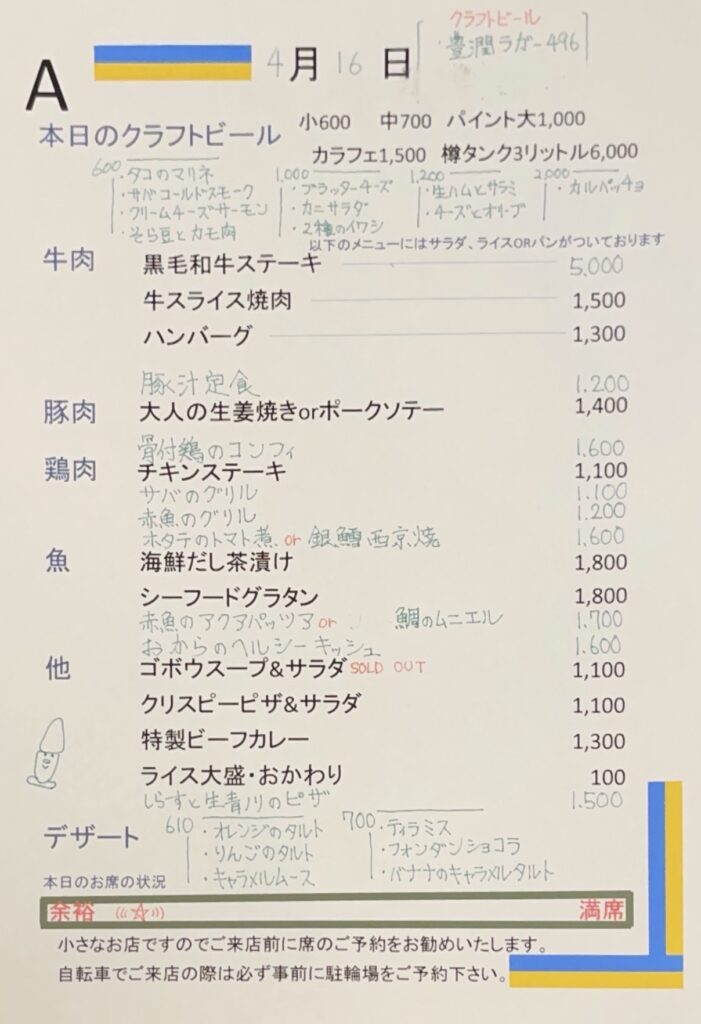 クラフトビール
・豊潤ラガー496
A
4月16日
本日のクラフトビール 小600 中700 パイント大1,000
カラフェ1,500 樽タンク3リットル6,000
600 ・タコのマリネ
・サバコールドスモーク
・クリームチーズサーモン
・そら豆とカモ肉
1,000 ・ブラッターチーズ
・カニサラダ
・2種のイワシ
1,200 ・生ハムとサラミ
・チーズとオリーブ
2,000 ・カルパッチョ
以下のメニューにはサラダ、ライスORパンがついております
牛肉 黒毛和牛ステーキ 5,000
牛スライス焼肉 1,500
ハンバーグ 1,300
豚汁定食 1.200
豚肉 大人の生姜焼きorポークソテー 1,400
骨付鶏のコンフィ 1.600
鶏肉 チキンステーキ 1,100
サバのグリル 1.100
赤魚のグリル 1.200
ホタテのトマト煮 or 銀鱈西京焼 1.600
魚 海鮮だし茶漬け 1,800
シーフードグラタン 1,800
赤魚のアクアパッツア or 鯛のムニエル 1.700
おからのヘルシーキッシュ 1.600
他 ゴボウスープ&サラダ SOLD OUT 1,100
クリスピーピザ&サラダ 1,100
特製ビーフカレー 1,300
ライス大盛・おかわり 100
しらすと生青川のピザ 1.500
デザート 610 ・オレンジのタルト
・りんごのタルト
・キャラメルムース
700 ・ティラミス
・フォンダンショコラ
・バナナのキャラメルタルト
本日のお席の状況
余裕 (((☆))) 満席
小さなお店ですのでご来店前に席のご予約をお勧めいたします。
自転車でご来店の際は必ず事前に駐輪場をご予約下さい。